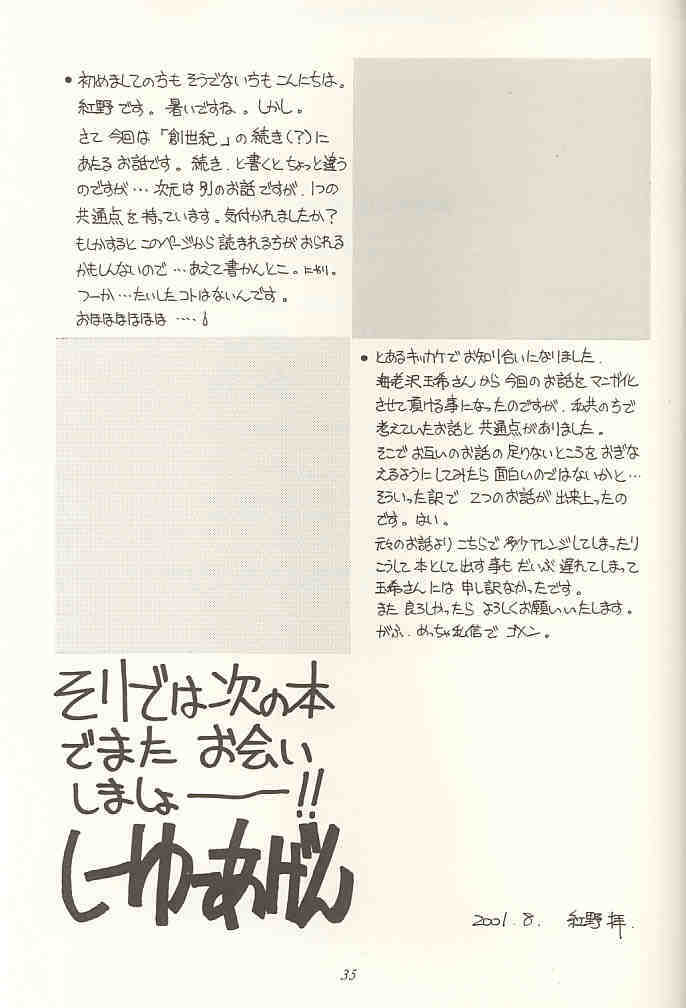 ●初めましての方も そうでない方も こんにちは。
紅野です。暑いですね。しかし。
さて 今回は「創世紀」の続き(?)に
あたるお話です。続き、と書くとちょっと違う
のですが… 次元は別のお話ですが、1つの
共通点を持っています。気付かれましたか?
もしかすると このページから読まれる方がおられる
かもしんないので …あえて書かんとこ。にやり。
つーか…たいしたコトはないんです。
おほほほほほほ ….!
●とあるキッカケで お知り合いになりました、
海老沢玉希さんから 今回のお話を マンガ化
させて頂ける事になったのですが、私共の方で
考えていたお話と 共通点がありました。
そこで お互いのお話の 足りないところを おぎな
えるようにしてみたら 面白いのではないかと…
そういった訳で 2つのお話が 出来上ったの
です。はい。
元々のお話より こちらで 多少アレンジしてしまったり
こうして 本として出す事も だいぶ遅れてしまって
玉希さんには 申し訳なかったです。
また 良ろしかったら よろしくお願いいたします。
がふ、めっちゃ私信で ゴメン。
そりでは次の本
でまた お会い
しましょ――!!
しーゆーあげん
2001.8. 紅野 拝.
35